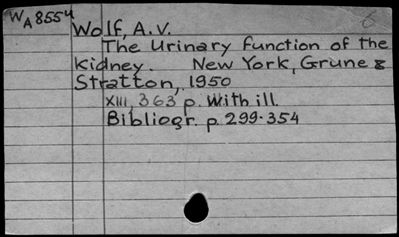 WA855u
Wolf, A.V.
The Urinary function of the
Kidney. New York, Grune &
Stratton, 1950
XIII, 363 p. With ill.
Bibliogr. p. 299-354